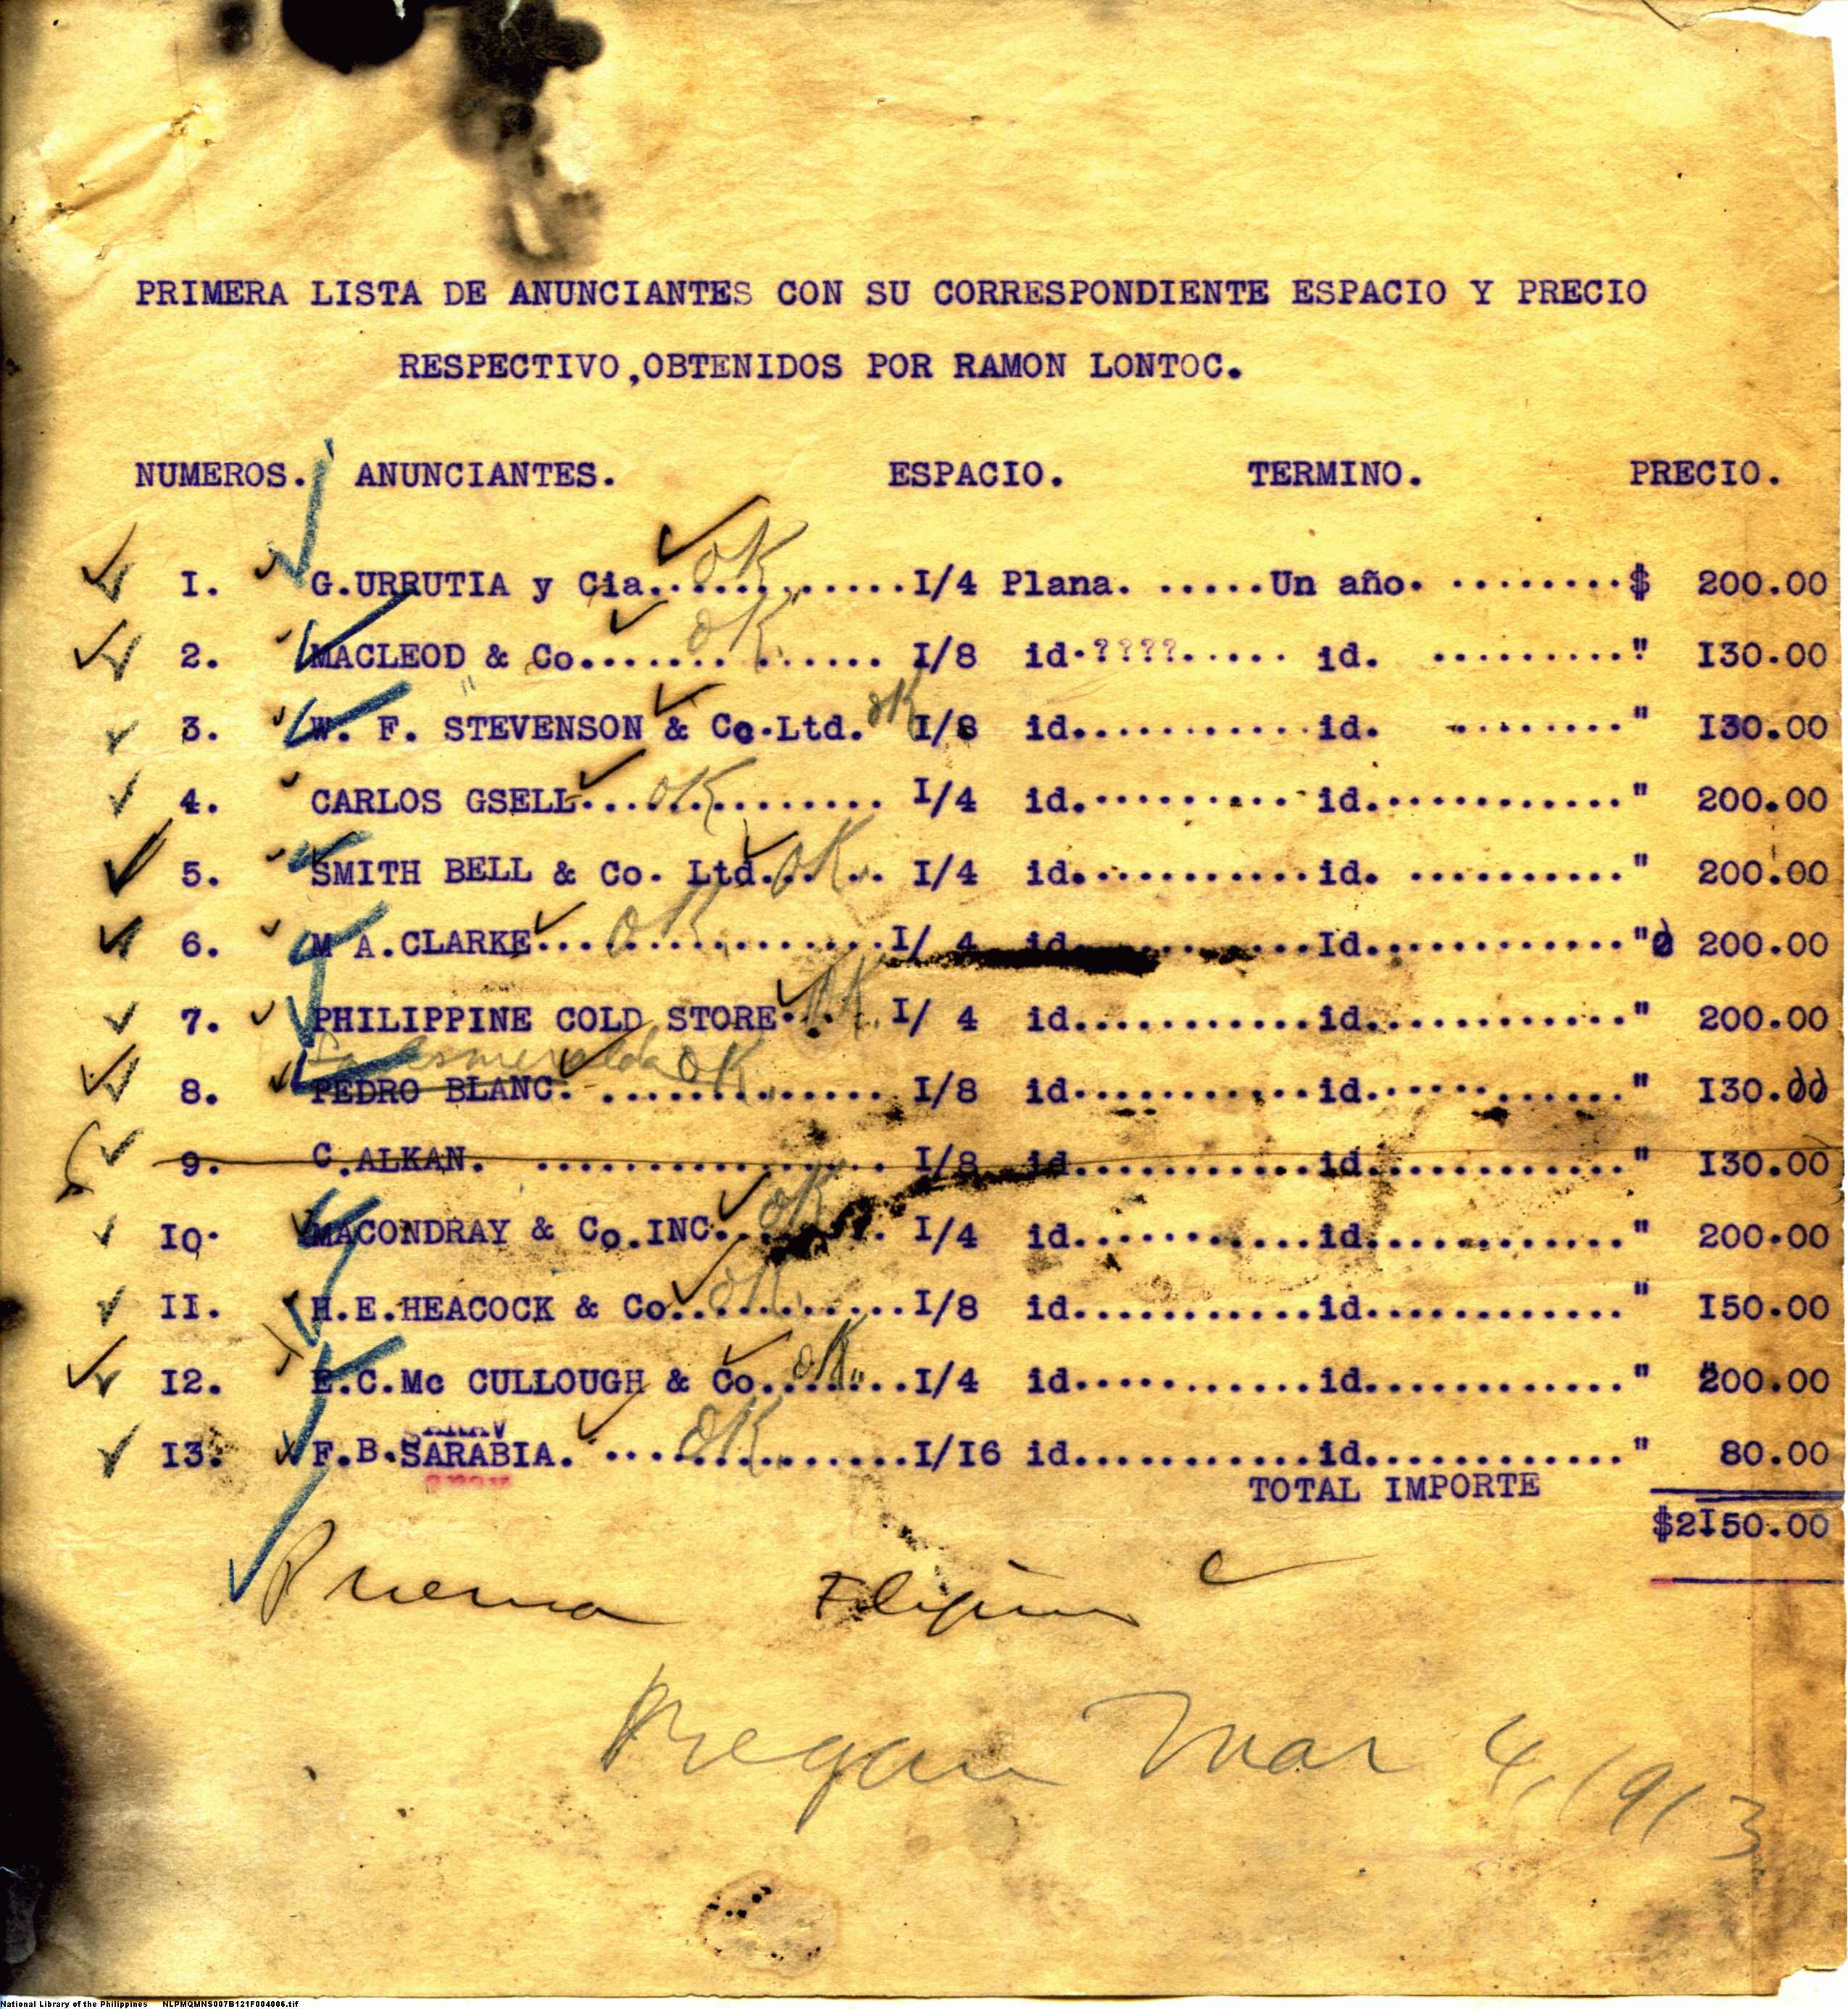 PRIMERA LISTA DE ANUNCIANTES CON SU CORRESPONDIENTE ESPACIO Y PRECIO
RESPECTIVO,OBTENIDOS POR RAMON LONTOC.
NUMEROS. ANUNCIANTES. ESPACIO. TERMINO. PRECIO.
I. G.URRUTIA y Cia............I/4 Plana. .....Un año. ........$ 200.00 OK
2. MACLEOD & Co.............. I/8 id.????..... id. ........." I30.00 OK.
3. W. F. STEVENSON & Co.Ltd. I/8 id...........id. ........" I30.00 OK
4. CARLOS GSELL.............. I/4 id...........id............" 200.00 OK
5. SMITH BELL & Co. Ltd...... I/4 id...........id. .........." 200.00 OK.
6. M A.CLARKE................I/ 4 id...........Id............" 200.00 OK
7. PHILIPPINE COLD STORE.... I/ 4 id...........id............" 200.00 OK.
La Esmeralda OK.
8. PEDRO BLANC. ............. I/8 id...........id............" I30.00
9. C.ALKAN. ................ I/8 id...........id............" I30.00
IO. MACONDRAY & Co.INC........ I/4 id...........id............" 200.00 OK
II. H.E.HEACOCK & Co...........I/8 id...........id............" I50.00 OK.
I2. E.C.Mc CULLOUGH & Co.......I/4 id...........id............" 200.00 OK.
I3. F.B.SARABIA. ..............I/I6 id...........id............" 80.00 OK.
TOTAL IMPORTE
$2I50.00
Filipino
Began Mar 4, 1913
National Library of the Philippines NLPMQMNS007B121F004006.tif